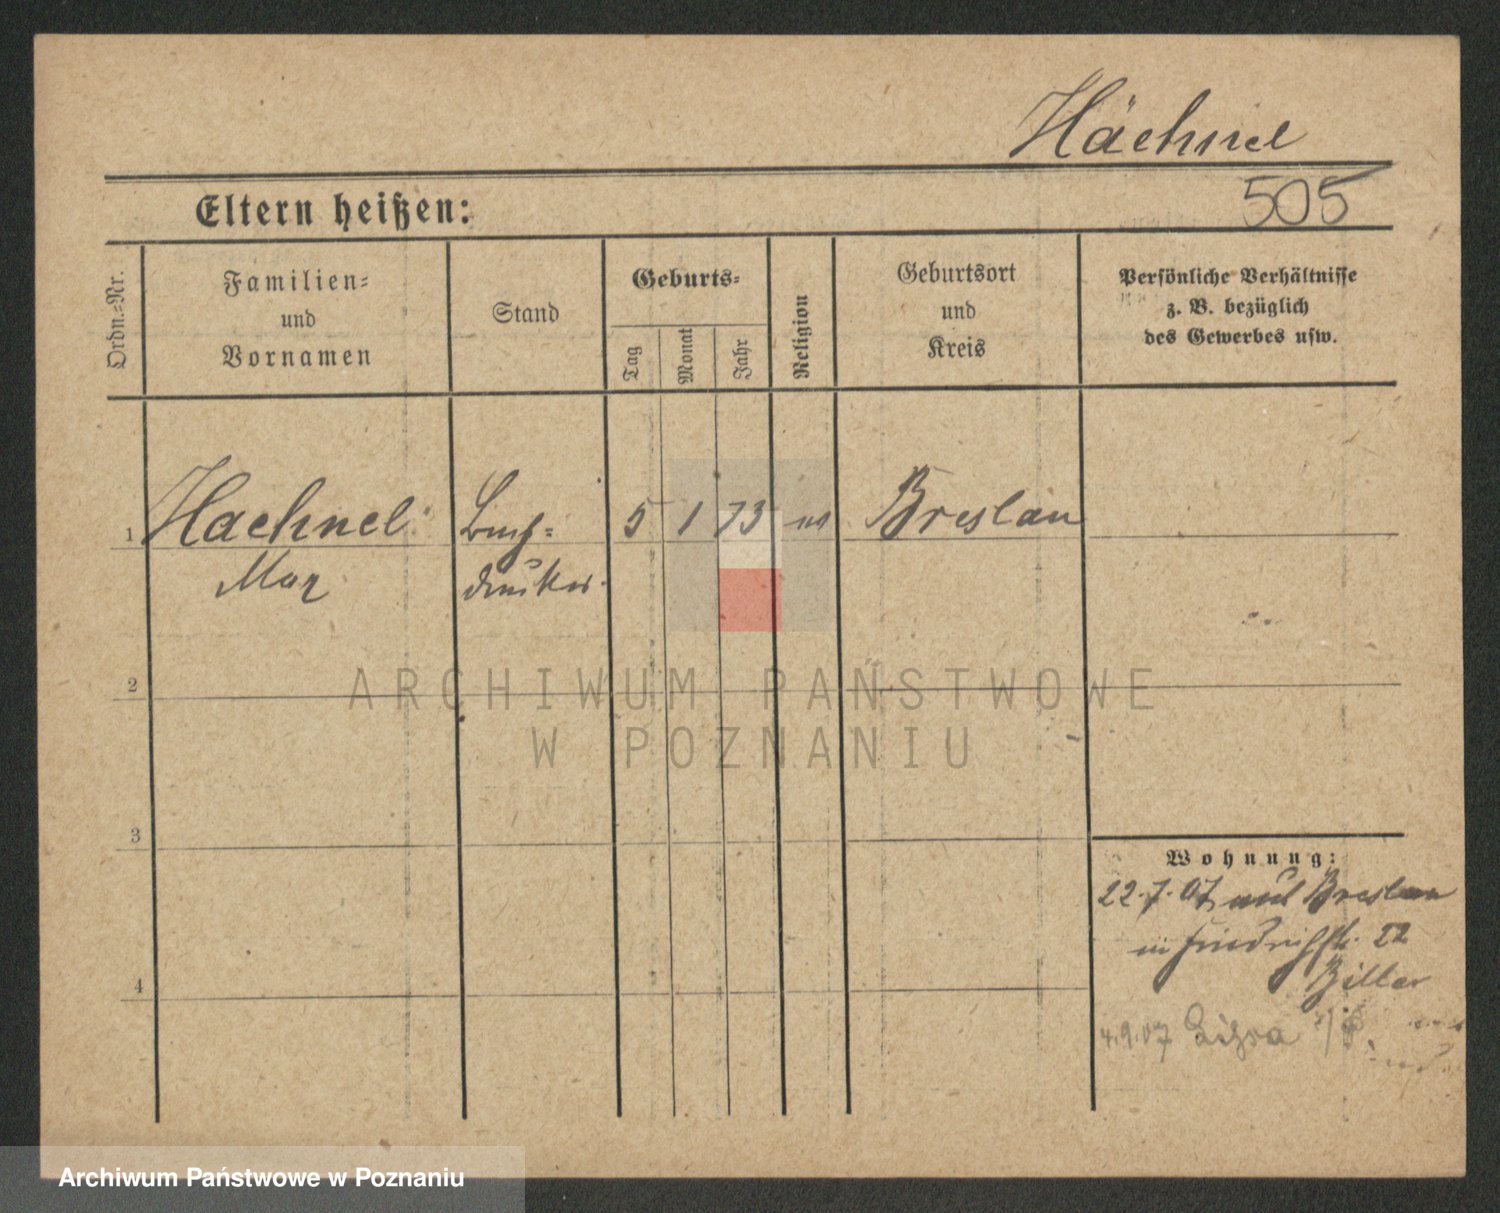 Hächnel
505
Eltern heißen:
Ordn.=Nr.
Familien=
und
Vornamen
Stand
Geburts=
Tag
Monat
Jahr
Religion
Geburtsort
und
Kreis
Persönliche Verhältnisse
z. B. bezüglich
des Gewerbes usw.
1 Haehnel Buch= 5 1 73 Breslau
Max drucker
2
ARCHIWUM PAŃSTWOWE
W POZNANIU
3
4
Wohnung:
22.7.07 aus Breslau
in Friedrichstr. 22
4.9.07
Archiwum Państwowe w Poznaniu